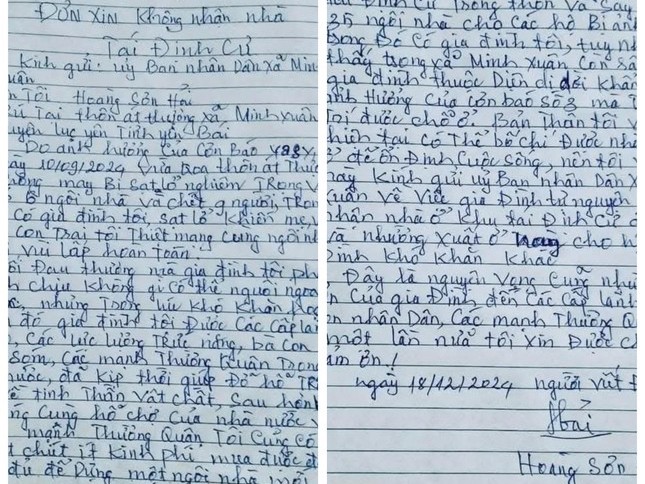 ĐƠN XIN Không nhận nhà
Tái Định Cư
Kính gửi: uỷ Ban nhân Dân xã Min
uân
n Tôi Hoàng Sơn Hải
ú Tại thôn át thượng xã Minh xuân
uyện lục yên Tỉnh yên Bái
Do ảnh hưởng Của Cơn Bão
ày 10/09/2024 vừa qua thôn át Thư
ông may Bị sạt lở nghiêm TRọng v
6 ngôi nhà và chết 9 người, TRon
Có gia đình tôi, sạt lở khiến mẹ, v
Con trai tôi Thiệt mạng Cùng ngôi nh
ị vùi lấp hoàn toàn.
ỗi Đau thương mà gia đình tôi ph
h chịu không gì có thể người ngoa
nhưng Trong lúc khó khăn
đó gia đình tôi Được Các Cấp lãn
, Các lực lượng TRức năng, bà Con
som, Các mạnh Thường Quân Trong
ước, đã kịp thời giúp Đỡ hỗ TR
ề tinh Thần vật chất, Sau hơn
ng Cùng hỗ chợ Của nhà nước v
mạnh Thường Quân Tôi Cũng Có
t chút ít kinh phí, mua được đ
đủ để Dựng một ngôi nhà mới
ái Định Cư Trong thôn và Say
35 ngôi nhà cho Các hộ Bị ản
Trong Đó Có gia đình tôi, tuy nh
thấy trong xã Minh Xuân Còn
gia đình thuộc Diện di dời khẩn
nh Hưởng Của Cơn bão Số 3 mà
ọi được chỗ ở. Bản Thân tôi v
hiện tại có Thể bố chí Được nh
ở để ổn Định Cuộc Sống, nên tôi
nay Kính gửi uỷ Ban nhân Dân X
xuân về việc gia Đình tự nguyện
nhận nhà ở khu tái Định Cư
và nhường xuất ở này cho h
ình khó khăn khác.
Đây là nguyện vọng Cũng nh
n Của gia Đình đến Các Cấp lãnh
n nhân Dân, Các mạnh Thường Qu
một lần nữa tôi Xin Được C
ảm ơn!
ngày 18/12/2024 người viết Đ
Hải
Hoàng Sơn